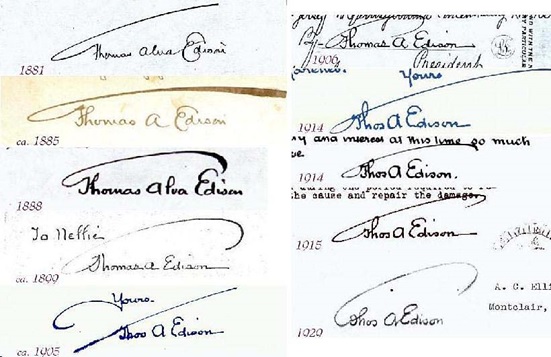 Thomas Alva Edison
1881
Thomas A Edison
ca. 1885
Thomas Alva Edison
1888
To Nellie
Thomas A Edison
ca. 1899
Yours.
Thos A Edison
ca. 1905
By- Thomas A Edison
1906
President
Yours
Thos A Edison
1914
and interest at this time so much
Thos A Edison.
1914
during the period required to
the cause and repair the damage.
Thos A Edison
1915
A. C. Elli
Montclair,
Thos A Edison
1929